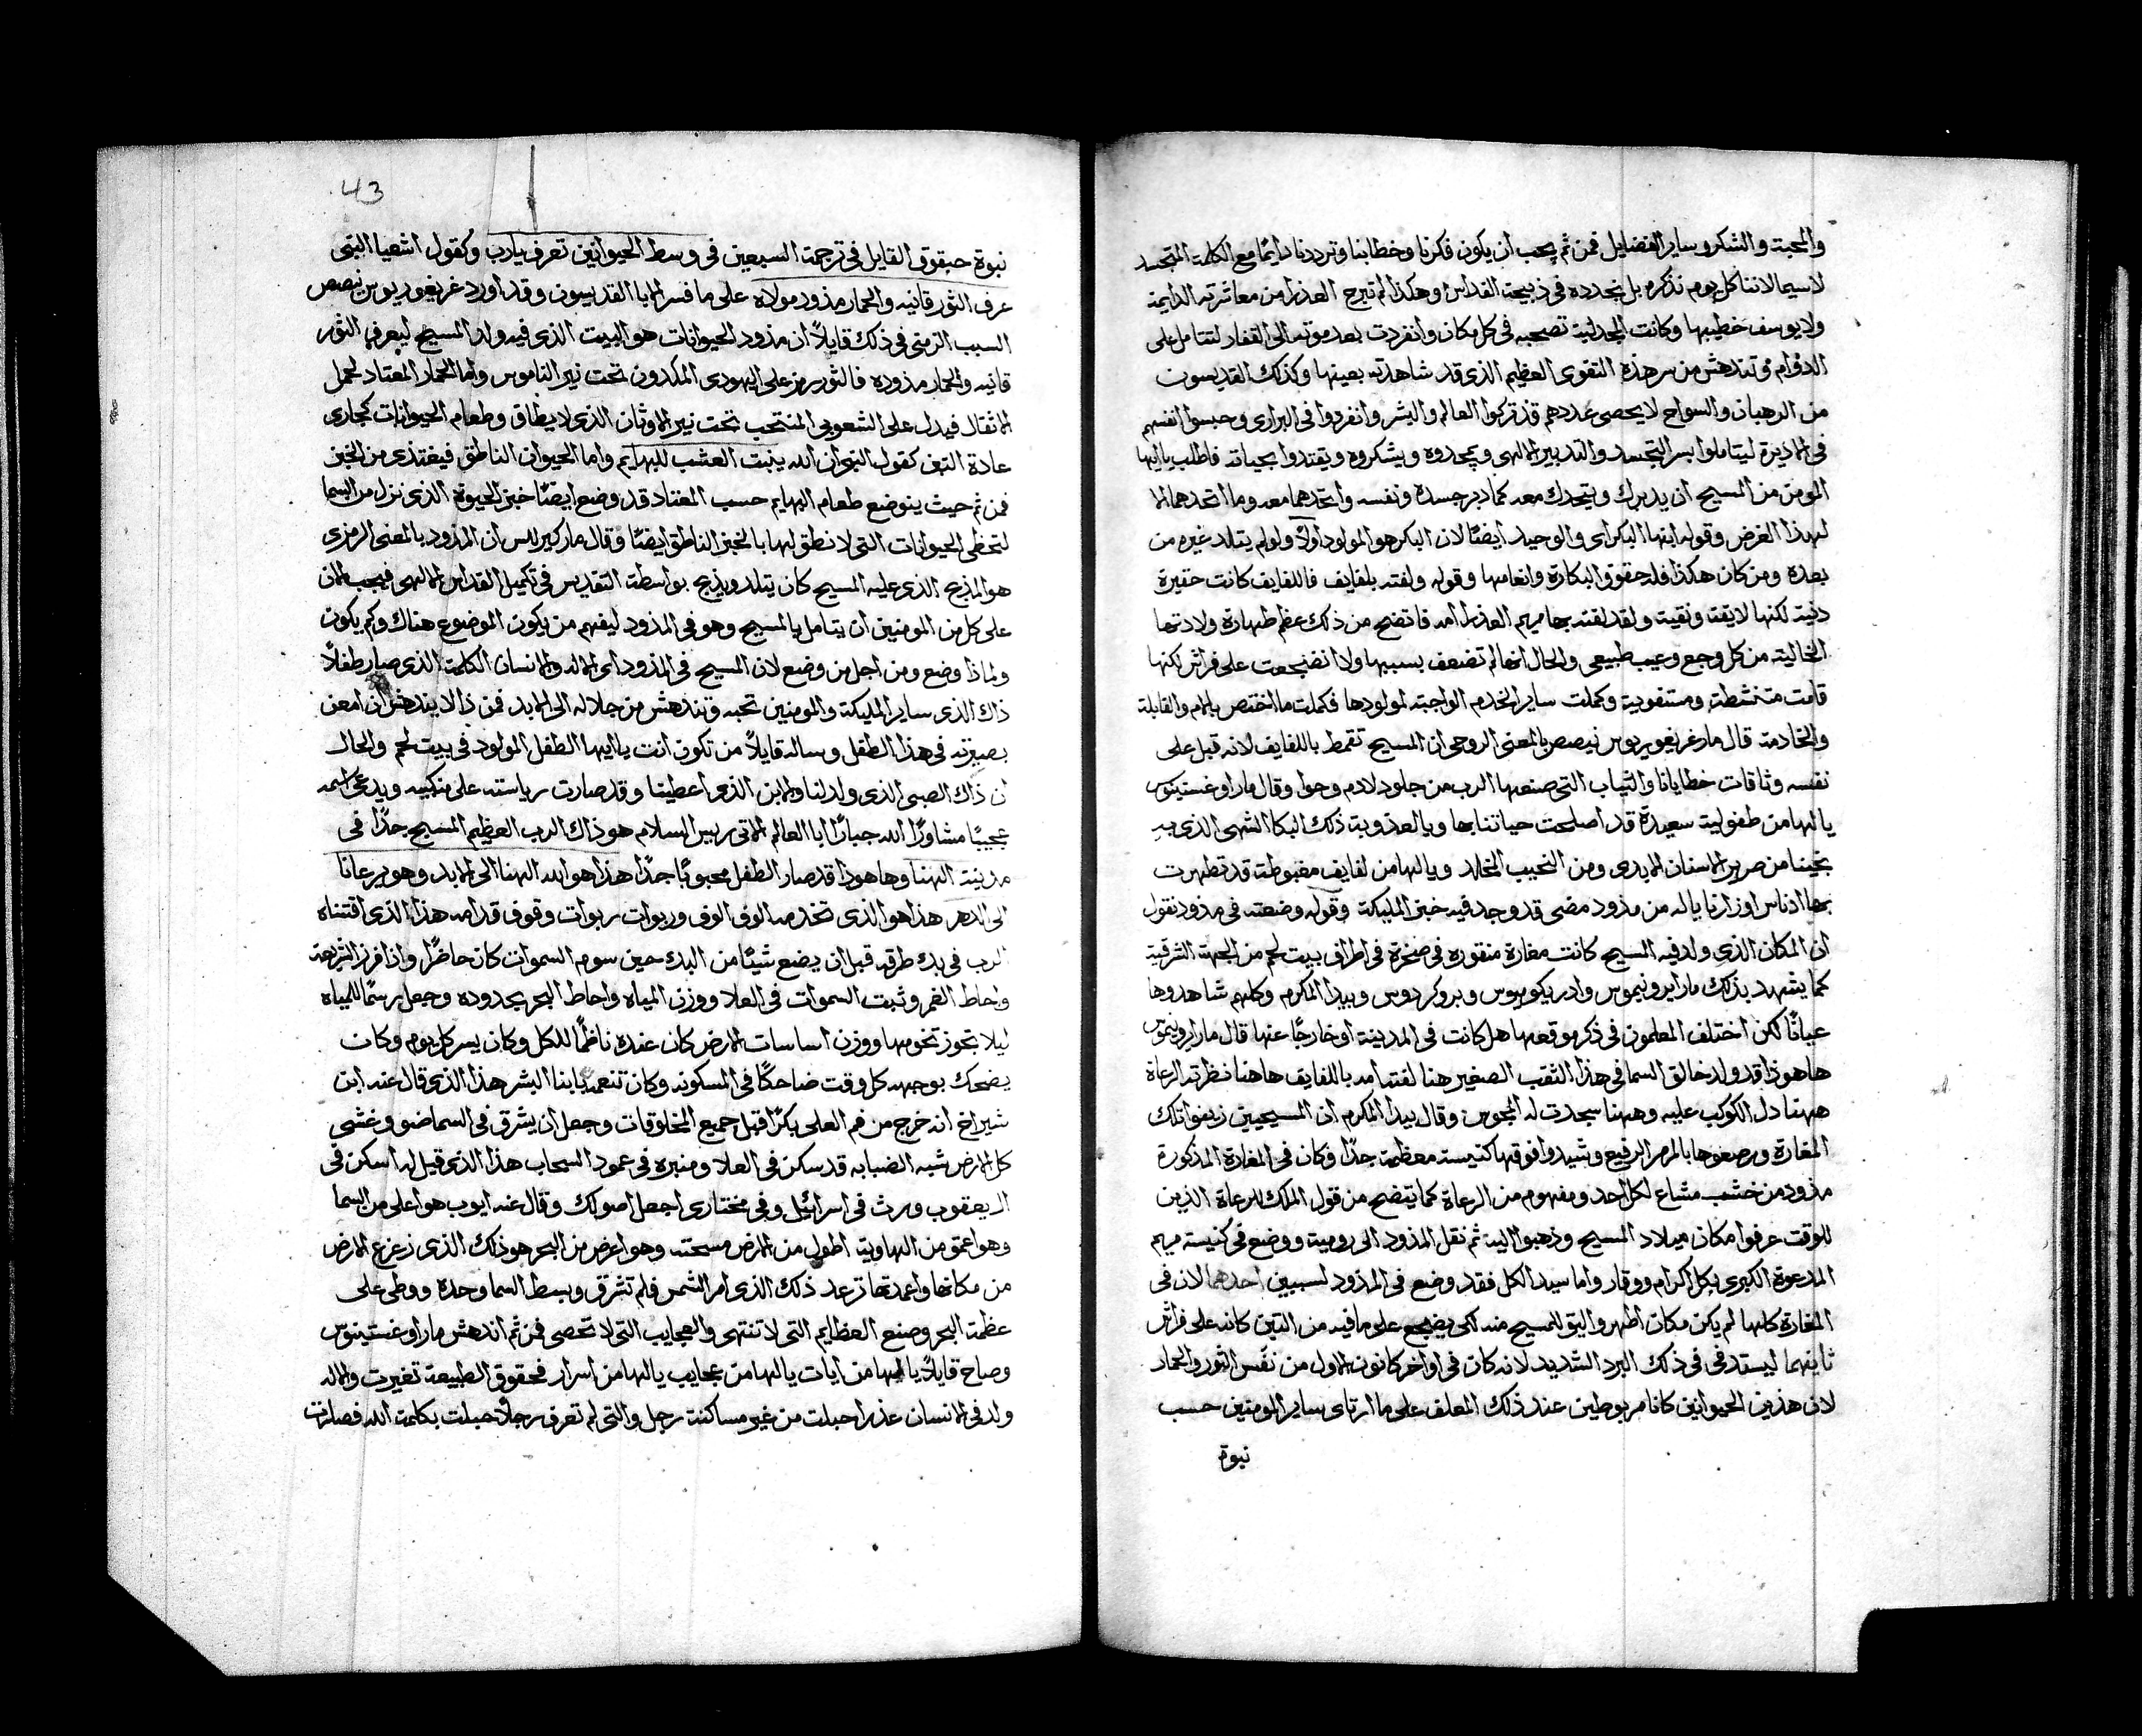 والمحبة والشكر وساير الفضايل فمن ثم يجب ان يكون فكرنا وخطابنا وترددنا دايمًا مع الكلمة المتجسد
لاسيما لاننا كل يوم نذكره بل نجدده في ذبيحة القداس وهكذا لم تبرح العذرا من معاشرته الدايمة
ولا يوسف خطيبها وكانت المجدلية تصحبه في كل مكان وانفردت بعد موته الى القفار لتتامل على
الدوام وتندهش من سر هذه التقوى العظيم الذي قد شاهدته بعينها وكذلك القديسون
من الرهبان والسواح لا يحصى عددهم قد تركوا العالم والبشر وانفردوا في البراري وحبسوا انفسهم
في الاديرة ليتاملوا بسر التجسد والتدبير الالهي ويمجدوه ويشكروه ويقتدوا بحياته فاطلب يا ايها
المومن من المسيح ان يدبرك ويتحدك معه كما دبر جسده ونفسه واتحدهما معه وما اتحدهما الا
لهذا الغرض وقوله ابنها البكر اي والوحيد ايضًا لان البكر هو المولود اولًا ولو لم يتلد غيره من
بعده ومن كان هكذا فله حقوق البكارة وانعامها وقوله ولفته بلفايف فاللفايف كانت حقيرة
دنية لكنها لايقة ونقية ولقد لفته بها مريم العذرا امه فاتضح من ذلك عظم طهارة ولادتها
الخالية من كل وجع وعيب طبيعي والحال انها لم تضعف بسببها ولا انضجعت على فراش لكنها
قامت متنشطة ومستقوية وكملت ساير الخدم الواجبة لمولودها فكملت ما اختص بالام والقابلة
والخادمة قال مار غريغوريوس نيصص بالمعنى الروحي ان المسيح تقمط باللفايف لانه قبل على
نفسه وثاقات خطايانا والثياب التي صنعها الرب من جلود لادم وحوا وقال مار اوغستينوس
يا لها من طفولية سعيدة قد اصلحت حياتنا بها ويا لعذوبة ذلك البكا الشهي الذي به
نجينا من صرير الاسنان الابدي ومن النحيب المخلد ويا لها من لفايف مغبوطة قد تطهرت
بها ادناس اوزارنا يا له من مذود مضى قد وجد فيه خبز المليكة وقوله وضعته في مذود نقول
ان المكان الذي ولد فيه المسيح كانت مغارة منقورة في صخرة في اطراف بيت لحم من الجهة الشرقية
كما يشهد بذلك مار ايرونيموس وادريكوميوس وبروكردوس وبيدا المكرم وكلهم شاهدوها
عيانًا لكن اختلف المعلمون في ذكر موقعها هل كانت في المدينة او خارجًا عنها قال مار ايرونيموس
ها هوذا قد ولد خالق السما في هذا الثقب الصغير هنا لفته امه باللفايف هاهنا نظرته الرعاة
ههنا دل الكوكب عليه وههنا سجدت له المجوس وقال بيدا المكرم ان المسيحيين زينوا تلك
المغارة ورصعوها بالمرمر الرفيع وشيدوا فوقها كنيسة معظمة جدًا وكان في المغارة المذكورة
مذود من خشب مشاع لكل احد ومفهوم من الرعاة كما يتضح من قول الملك للرعاة الذين
للوقت عرفوا مكان ميلاد المسيح وذهبوا اليه ثم نقل المذود الى رومية ووضع في كنيسة مريم
المدعوة الكبرى بكل اكرام ووقار واما سيد الكل فقد وضع في المذود لسببين احدهما لان في
المغارة كلها لم يكن مكان اطهر واليق للمسيح منه لكي يضجع على ما فيه من التبن كانه على فراش
ثانيهما ليستدفي في ذلك البرد الشديد لانه كان في اواخر كانون الاول من نفس الثور والحمار
لان هذين الحيوانين كانا مربوطين عند ذلك المعلف على ما ارتاى ساير المومنين حسب
نبوة
43
نبوة حبقوق القايل في ترجمة السبعين في وسط الحيوانين تعرف يا رب وكقول اشعيا النبي
عرف الثور قانيه والحمار مذود مولاه على ما فسر الابا القديسون وقد اورد غريغوريوس نيصص
السبب الرمزي في ذلك قايلًا ان مذود الحيوانات هو البيت الذي فيه ولد المسيح ليعرف الثور
قانيه والحمار مذوده فالثور رمز على اليهودي المكدون تحت نير الناموس واما الحمار المعتاد لحمل
الاثقال فيدل على الشعوبي المنتحب تحت نير الاوثان الذي لا يطاق وطعام الحيوانات كجاري
عادة التبن كقول النبي ان الله ينبت العشب للبهايم واما الحيوان الناطق فيغتذي من الخبز
فمن ثم حيث ينوضع طعام البهايم حسب المعتاد قد وضع ايضًا خبز الحيوة الذي نزل من السما
لتحظى الحيوانات التي لا نطق لها بالخبز الناطق ايضًا وقال مار كيرللس ان المذود بالمعنى الرمزي
هو المذبح الذي عليه المسيح كان يتلد ويذبح بواسطة التقديس في تكميل القداس الالهي فيجب الان
على كل من المومنين ان يتامل بالمسيح وهو في المذود ليفهم من يكون الموضوع هناك وكم يكون
ولماذا وضع ومن اجل من وضع لان المسيح في المذود اي الاله والانسان الكلمة الذي صار طفلًا
ذاك الذي ساير المليكة والمومنين تحبه وتندهش من جلاله الى الابد فمن ذا لا يندهش ان امعن
بصيرته في هذا الطفل وساله قايلًا من تكون انت يا ايها الطفل المولود في بيت لحم والحال
ان ذاك الصبي الذي ولد لنا والابن الذي اعطينا وقد صارت رياسته على منكبيه ويدعى اسمه
عجيبًا مشاورًا الله جبارًا ابا العالم الاتي ريس السلام هو ذاك الرب العظيم المسبح جدًا في
مدينة الهنا وها هوذا قد صار الطفل محبوبًا جدًا هذا هو الله الهنا الى الابد وهو يرعانا
الى الدهر هذا هو الذي تخدمه الوف الوف وربوات ربوات وقوف قدامه هذا الذي اقتناه
الرب في بدء طرقه قبل ان يضع شيئًا من البدء حين سوم السموات كان حاضرًا واذا فرز الشريعة
واحاط الغمر وثبت السموات في العلا ووزن المياه واحاط البحر بحدوده وجعل رسمًا للمياه
ليلا تجوز تخومها ووزن اساسات الارض كان عنده ناظمًا للكل وكان يسر كل يوم وكان
يضحك بوجهه كل وقت ضاحكًا في المسكونة وكان تنعمه بابنا البشر هذا الذي قال عنه ابن
شيراخ انه خرج من فم العلي بكرًا قبل جميع المخلوقات وجعل ان يشرق في السما ضو وغشي
كل الارض شبه الضبابه قد سكن في العلا ومنبره في عمود السحاب هذا الذي قيل له اسكن في
ال يعقوب ورث في اسرائيل وفي مختاري اجعل اصولك وقال عنه ايوب هو اعلى من السما
وهو اعمق من الهاوية اطول من الارض مسحته وهو اعرض من البحر هو ذلك الذي زعزع الارض
من مكانها واعمدتها ترعد ذلك الذي امر الشمس فلم تشرق وبسط السما وحده ووطي على
عظمة البحر وصنع العظايم التي لا تنتهي والعجايب التي لا تحصى فمن ثم اندهش مار اوغستينوس
وصاح قايلًا يا لها من ايات يا لها من عجايب يا لها من اسرار فحقوق الطبيعة تغيرت والاله
ولد في الانسان عذرا حبلت من غير مساكنة رجل والتي لم تعرف رجلًا حبلت بكلمة الله فصارت